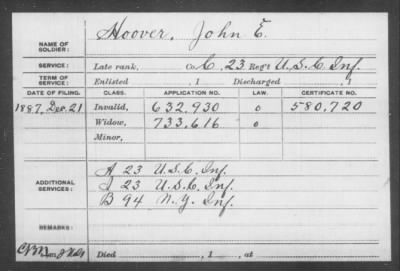 NAME OF SOLDIER: Hoover, John E.
SERVICE: Late rank, Co. C, 23 Reg't U.S.C. Inf.
TERM OF SERVICE: Enlisted , 1 Discharged , 1
DATE OF FILING. CLASS. APPLICATION NO. LAW. CERTIFICATE NO.
1887, Dec. 21 Invalid, 632.930 o 580,720
Widow, 733,616 o
Minor,
ADDITIONAL SERVICES:
A 23 U.S.C. Inf.
I 23 U.S.C. Inf.
B 94 N.Y. Inf.
REMARKS:
Died , 1 , at